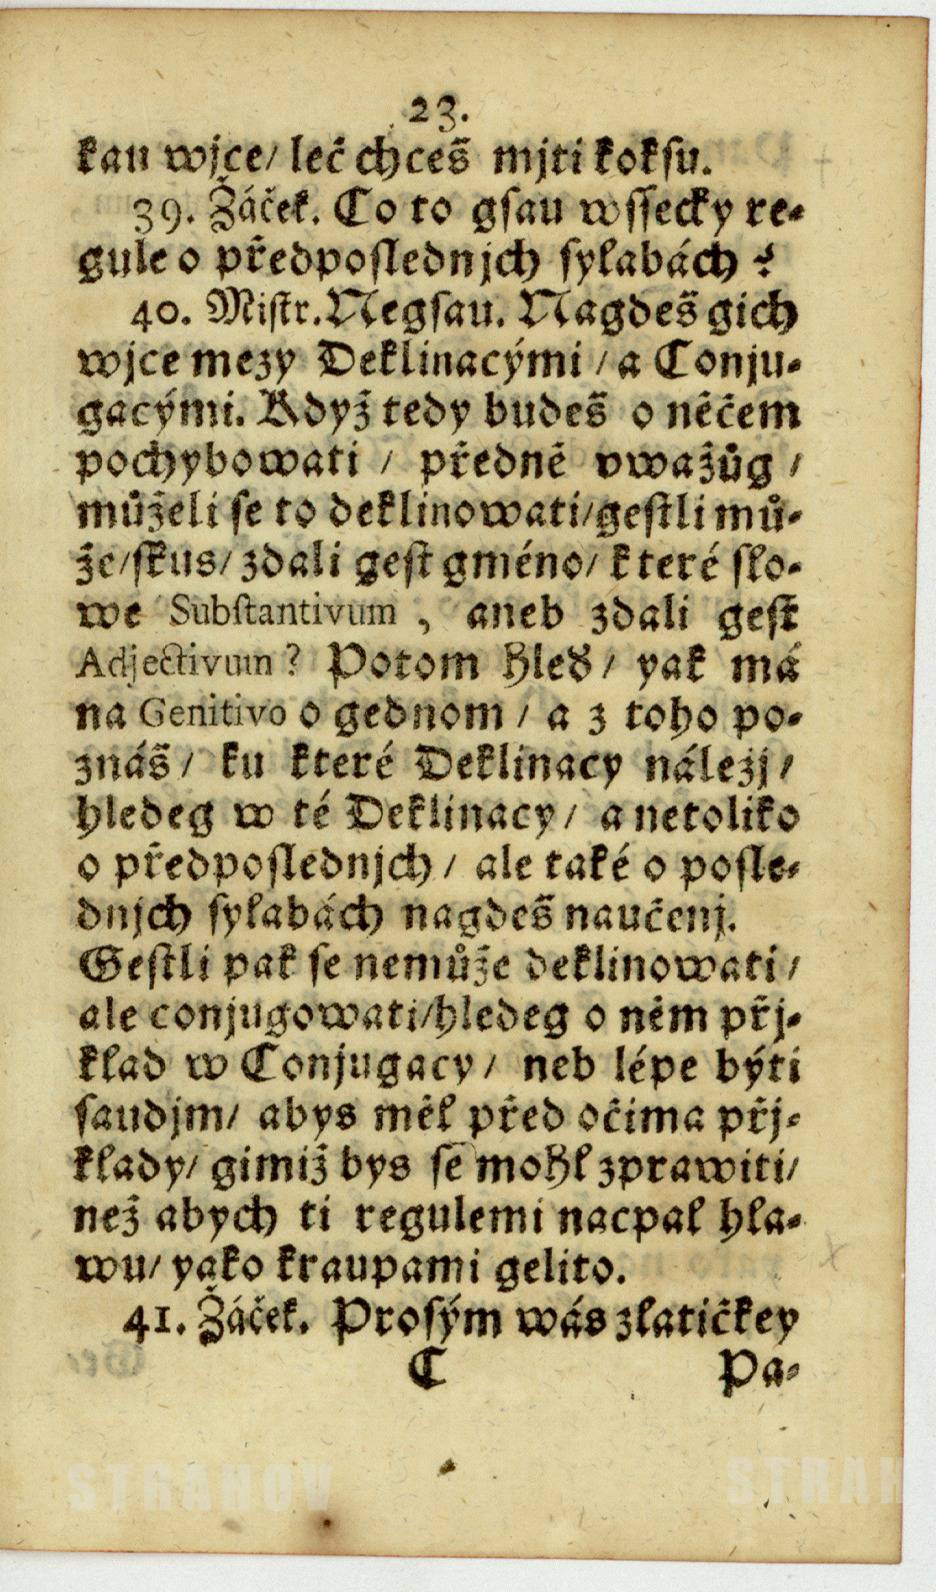 23.
kau wjce/ leč chceš mjti koksu.
39. Žáček. Co to gsau wssecky re-
gule o předposlednjch sylabách?
40. Mistr. Negsau. Nagdeš gich
wjce mezy Deklinacými / a Conju-
gacými. Když tedy budeš o něčem
pochybowati / předně vwažůg /
můželi se to deklinowati/gestli mů-
že/skus/ zdali gest gméno/ které slo-
we Substantivum, aneb zdali gest
Adjectivum? Potom hleď/ yak má
na Genitivo o gednom / a z toho po-
znáš/ ku které Deklinacy náležj/
hledeg w té Deklinacy/ a netoliko
o předposlednjch/ ale také o posle-
dnjch sylabách nagdeš naučenj.
Gestli pak se nemůže deklinowati/
ale conjugowati/hledeg o něm přj-
klad w Conjugacy/ neb lépe býti
saudjm/ abys měl před očima přj-
klady/ gimiž bys se mohl zprawiti/
než abych ti regulemi nacpal hla-
wu/ yako kraupami gelito.
41. Žáček. Prosým wás zlatičkey
C Pa-
STRAHOV STRAH